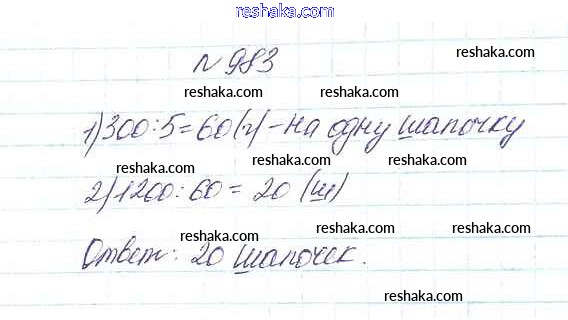 reshaka.com
№983
reshaka.com
reshaka.com
reshaka.com
1) 300:5=60(г)-на одну шапочку
reshaka.com
reshaka.com
2) 1200:60=20 (ш)
reshaka.com
reshaka.com
reshaka.com
Ответ: 20 шапочек.
reshaka.com